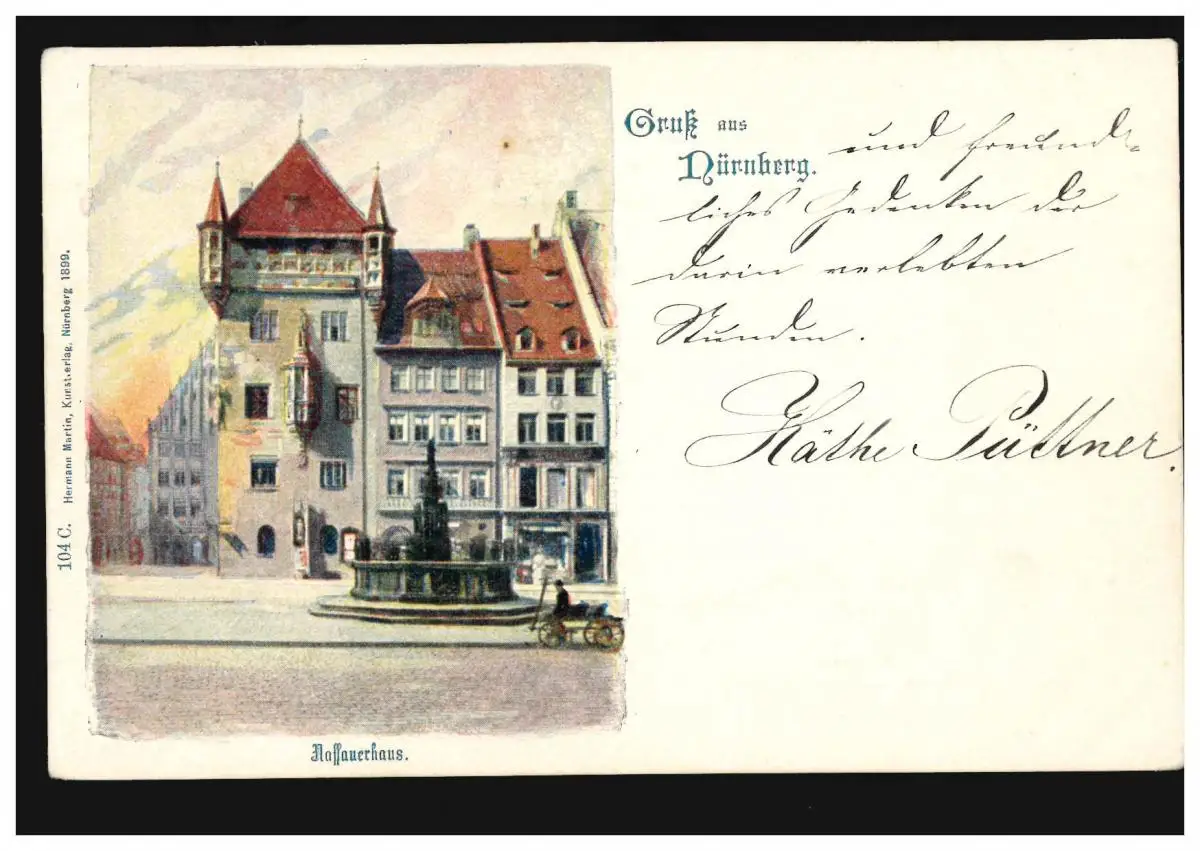 Gruß aus
Nürnberg.
und freund-
liches Gedenken der
darin verlebten
Stunden.
Käthe Püttner.
104 C. Hermann Martin, Kunstverlag, Nürnberg 1899.
Nassauerhaus.